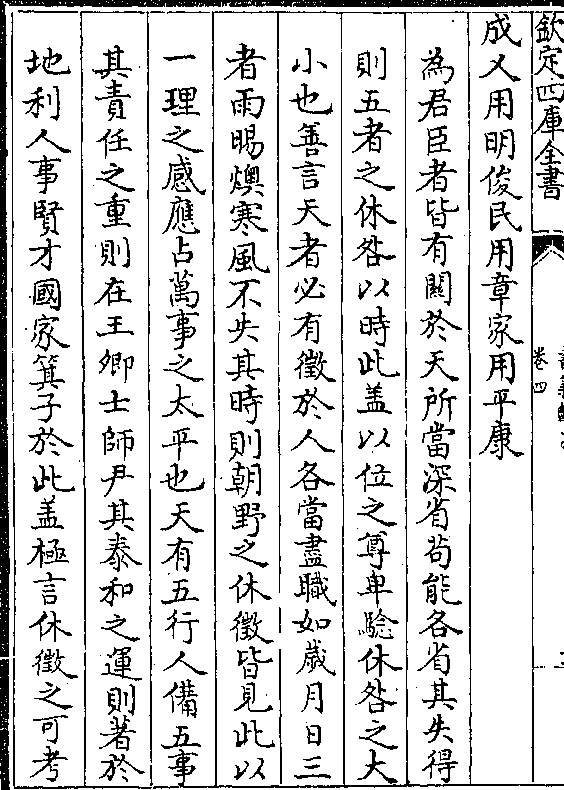 欽定四庫全書
卷四
成乂用明俊民用章家用平康
為君臣者皆有關於天所當深省茍能各省其失得
則五者之休咎以時此盖以位之尊卑驗休咎之大
小也善言天者必有徵於人各當盡職如歲月日三
者雨暘燠寒風不失其時則朝野之休徵皆見此以
一理之感應占萬事之太平也天有五行人備五事
其責任之重則在王卿士師尹其泰和之運則著於
地利人事賢才國家箕子於此盖極言休徵之可考